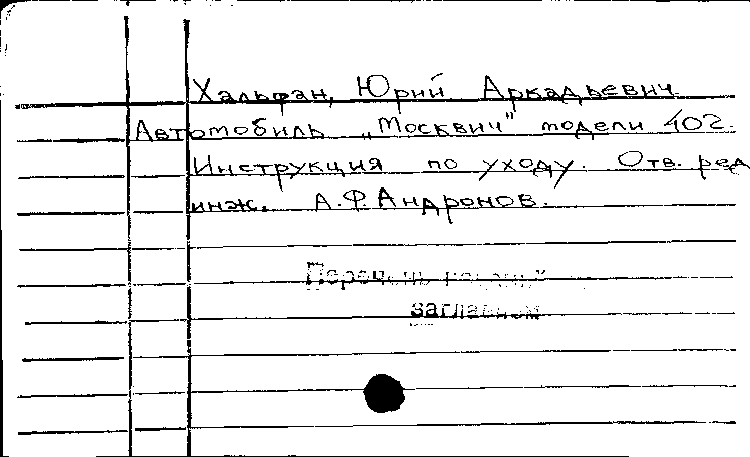 Хальфан, Юрий Аркадьевич
Автомобиль „Москвич" модели 402.
Инструкция по уходу. Отв. ред
инж. А.Ф. Андронов.
Перечень
заглавием